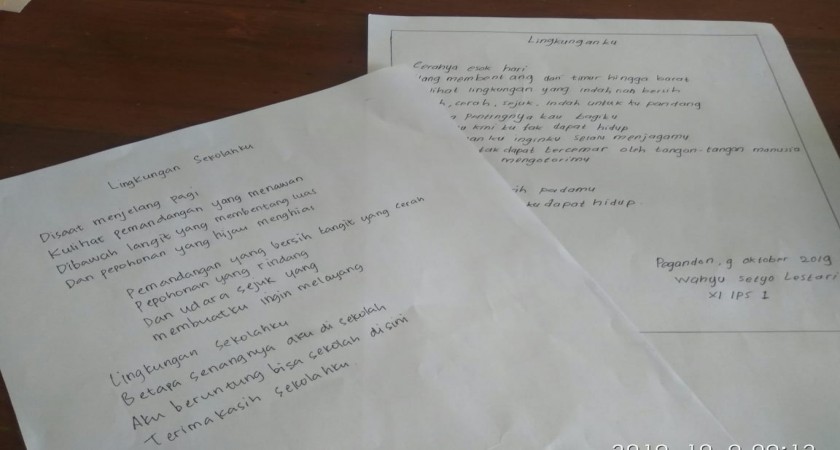 Lingkungan Sekolahku
Disaat menjelang pagi
Kulihat pemandangan yang menawan
Dibawah langit yang membentang luas
Dan pepohonan yang hijau menghias
Pemandangan yang bersih langit yang cerah
Pepohonan yang rindang
Dan udara sejuk yang
membuatku ingin melayang
Lingkungan sekolahku
Betapa senangnya aku di sekolah
Aku beruntung bisa sekolah disini
Terimakasih sekolahku
Lingkunganku
Cerahnya esok hari
membentang dari timur hingga barat
lihat lingkungan yang indah nan bersih
cerah, sejuk, indah untuk ku pandang
pentingnya kau bagiku
kini ku tak dapat hidup
inginku selalu menjagamu
tak dapat tercemar oleh tangan-tangan manusia
mengotorimu
padamu
ku dapat hidup.
Pagandon, 9 Oktober 2019
Wahyu Setyo Lestari
XI IPS 1